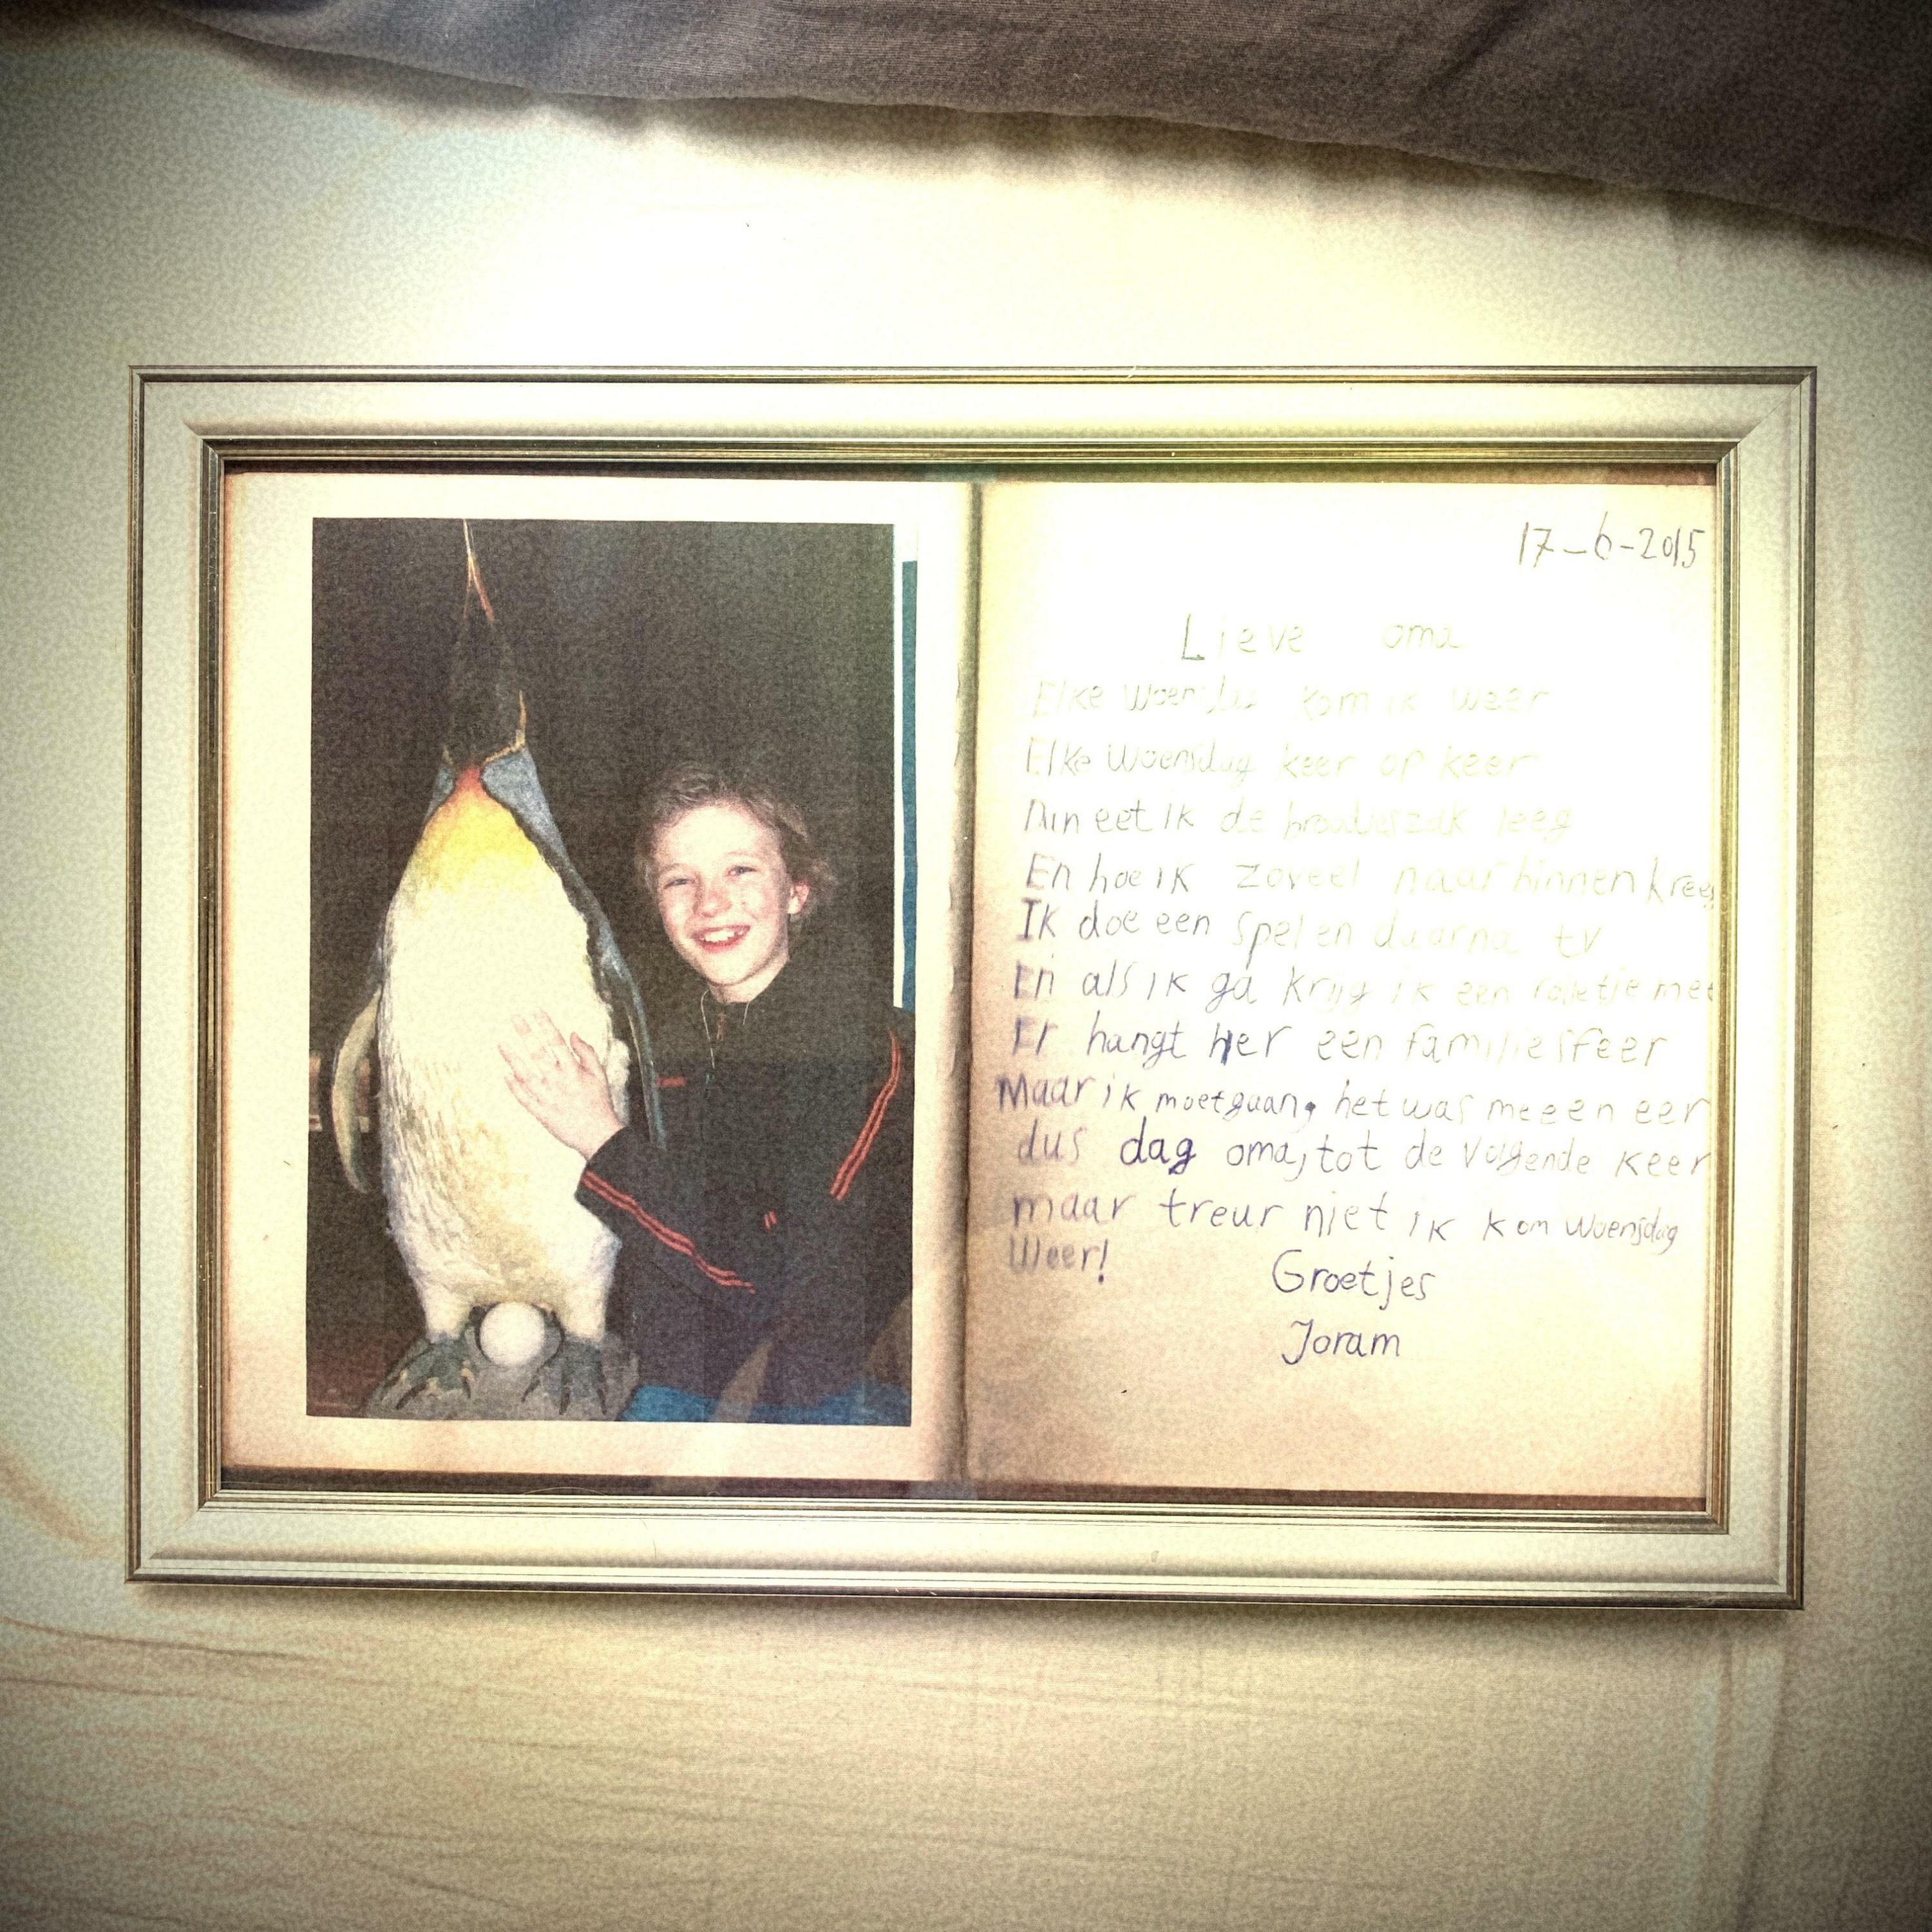 17-6-2015
Lieve oma
Elke woensdag kom ik weer
Elke woensdag keer op keer
Dan eet ik de broodjeszak leeg
En hoe ik zoveel naar binnen kreeg
Ik doe een spel en daarna tv
En als ik ga krijg ik een rolletje mee
Er hangt hier een familiesfeer
Maar ik moet gaan, het was me een eer
dus dag oma, tot de volgende keer
maar treur niet ik kom woensdag
Weer!
Groetjes
Joram